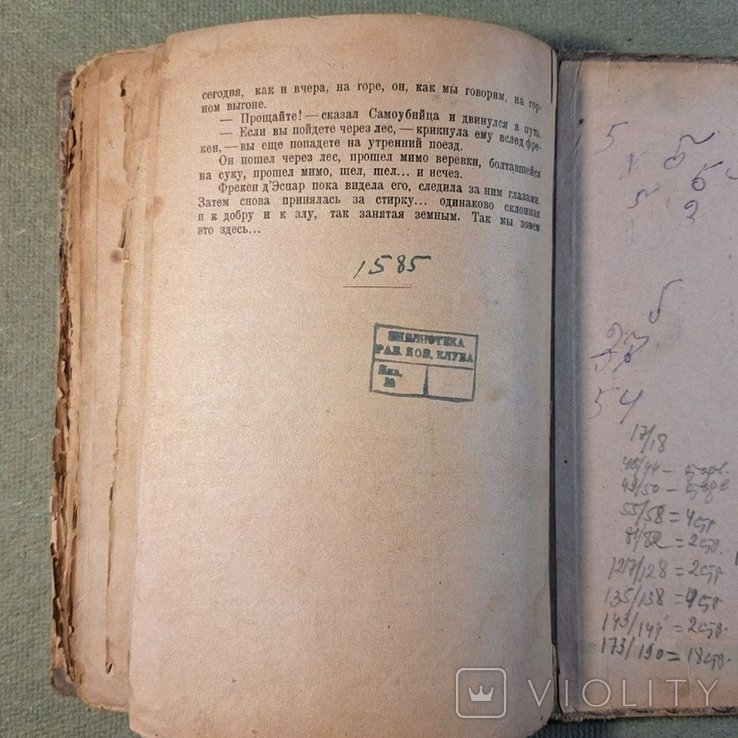 сегодня, как и вчера, на горе, он, как мы говорим, на гор-
ном выгоне.
— Прощайте! — сказал Самоубийца и двинулся в путь.
— Если вы пойдете через лес, — крикнула ему вслед фре-
кен, — вы еще попадете на утренний поезд.
Он пошел через лес, прошел мимо веревки, болтавшейся
на суку, прошел мимо, шел, шел... и исчез.
Фрекен д'Эспар пока видела его, следила за ним глазами.
Затем снова принялась за стирку... одинаково склонная
и к добру и к злу, так занятая земным. Так мы зовем
это здесь...
1585
БИБЛИОТЕКА
РАБ. КЛУБА
№
5
5
6
5
2
6
37
54
17/18
49/50
55/58 = 4 стр
81/82 = 2 стр.
127/128 = 2 стр.
135/138 = 4 стр
143/144 = 2 стр.
173/190 = 18 стр.
VIOLITY